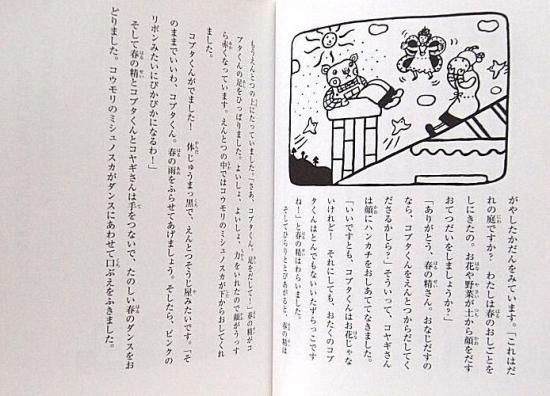 がやしたかだんをみています。「これはだ
れの庭ですか? わたしは春のおしごとを
しにきたの。お花や野菜が土から顔をだす
おてつだいをしましょうか?」
「ありがとう、春の精さん。おなじだすの
なら、コブタくんをえんとつからだしてく
ださるかしら?」そういって、コヤギさん
は顔にハンカチをおしあててなきました。
「いいですとも、コブタくんはお花じゃな
いけれど! それにしても、おたくのコブ
タくんはとんでもないいたずらっこです
ね!」と春の精はわらいました。
そしてひらりととびあがると、春の精は
もうえんとつの上にたっていました。「さあ、コブタくん。足をだして!」春の精がコ
ブタくんの足をひっぱりました。よいしょ、よいしょ、力をいれたので顔がうっす
ら赤くなっています。えんとつの中ではコウモリのミシュノスカが下からおしてくれ
ました。
コブタくんがでました! 体じゅうまっ黒で、えんとつそうじ屋みたいです。「そ
のままでいいわ、コブタくん。春の雨をふらせてあげましょう。そしたら、ピンクの
リボンみたいにぴかぴかになるわ!」
そして春の精とコブタくんとコヤギさんは手をつないで、たのしい春のダンスをお
どりました。コウモリのミシュノスカがダンスにあわせて口ぶえをふきました。